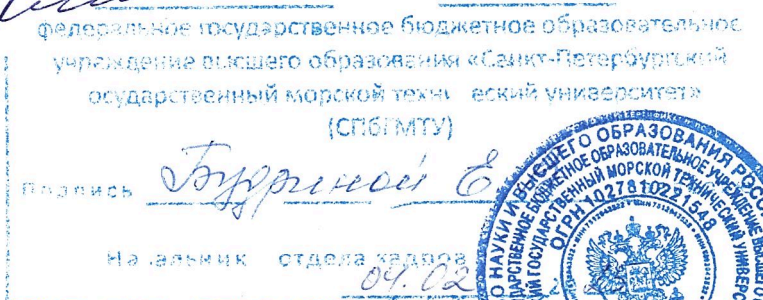 федеральное государственное бюджетное образовательное
учреждение высшего образования «Санкт-Петербургский
осударственный морской техн еский университет»
(СПбГМТУ)
Подпись Будриной Е
Начальник отдела кадров
04.02
НАУКИ И ВЫСШЕГО ОБРАЗОВАНИЯ РОСС
ДАРСТВЕННОЕ БЮДЖЕТНОЕ ОБРАЗОВАТЕЛЬНОЕ УЧРЕЖДЕНИЕ ВЫСШЕГО
ГОСУДАРСТВЕННЫЙ МОРСКОЙ ТЕХНИЧЕСКИЙ УНИВЕР
ОГРН 1027810221548